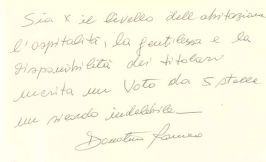 Sia x il livello dell'abitazione
l'ospitalità, la gentilezza e la
disponibilità dei titolari
merita un Voto da 5 stelle
un ricordo indelebile
Donatina